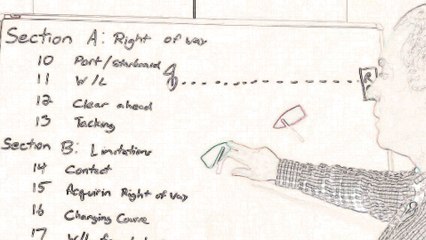 Section A: Right of way
10 Port/starboard
11 W/L
12 Clear ahead
13 Tacking
Section B: Limitations
14 Contact
15 Acquirin Right of way
16 Changing Course
17 W/L